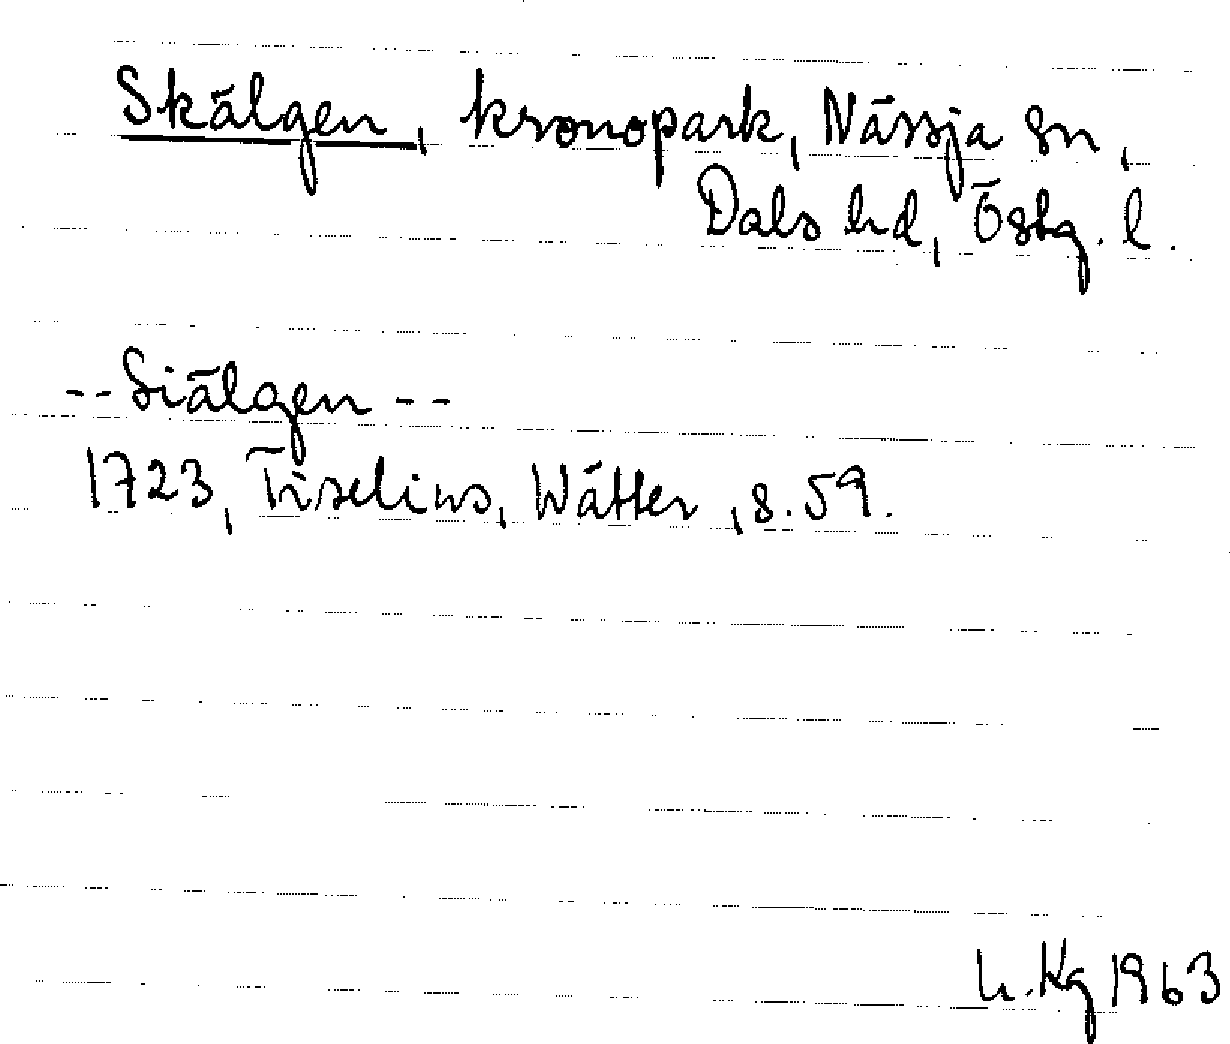 Skälgen, kronopark, Nässja sn,
Dals hd, Östg. l.
--Siälgen--
1723, Tiselius, Wätter, s. 59.
L. Kg 1963